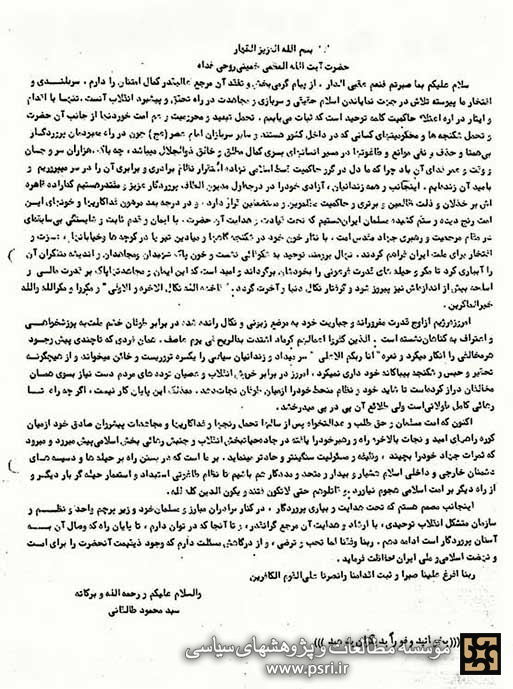 بسم الله العزیز القهار
حضرت آیت الله العظمی خمینی روحی فداه
سلام علیکم بما صبرتم فنعم عقبی الدار . از پیام گرمی بخش و تفقد آن مرجع عالیقدر کمال امتنان را دارم . سربلندی و
افتخار ما پیوسته تلاش در جهت نمایاندن اسلام حقیقی و سربازی و مجاهدت در راه تحقق و پیشبرد انقلاب آنست . تنها با اقدام
و ایثار در راه اعتلاء حاکمیت کلمه توحید است که ثبات می‌یابیم . تحمل تبعید و محرومیت
و تحمل شکنجه ها و محکومیتهای کسانی که در داخل کشور هستند و سایر سربازان امام عصر (عج) چون در راه معبودمان پروردگار
بی‌همتا و حذف و نفی موانع و طاغوتها در مسیر انسانها بسوی کمال مطلق و خالق ذوالجلال میباشد ، چه باک . هزاران سر و جان
بامید آن زنده‌ایم . اینجانب و همه زندانیان ، آزادی خود را در درجه اول مدیون الطاف پروردگار عزیز و مقتدر هستیم که اراده قاهره
اش بر خذلان و ذلت ظالمین و برتری و حاکمیت مظلومین و مستضعفین قرار دارد ، و در درجه بعد مرهون فداکاریها و خونهای این
امت رنج دیده و ستم کشیده مسلمان ایران هستیم که تحت قیادت و هدایت آن حضرت ، با ایمان و قدم ثابت و شایستگی بی‌سابقه‌ای
در مقام مرجعیت و رهبری جهاد مقدس امت ، با نثار خون خود در شکنجه گاهها و میادین تیر یا در کوچه ها و خیابانها ، عزت و
افتخار برای ملت ایران فراهم کردند . نهال برومند توحید به شکوفائی نشست و خون پاک شهیدان و مجاهدان ، اندیشه متفکران آن
را آبیاری کرد تا مکر و حیله های قدرت فرعونی را بخودشان برگرداند و امید است که این ایمان و مجاهدتها
اسلحه بیش از اندازه‌اش نیز پیروز شود و گرفتار نکال دنیا و آخرت گردد . فاخذه الله نکال الاخرة و الاولی " و مکروا و مکرالله والله
خیرالماکرین .
امروز رژیم از اوج قدرت مغرورانه و جباریت خود به موضع زبونی و نکال رانده شده در برابر طوفان خشم ملت به پوزشخواهی
و اعتراف به گناهان نشسته است . الذین کفروا اعمالهم کرماد اشتدت به الریح فی یوم عاصف . همان فردی که تا چندی پیش وجود
هر مخالفی را انکار میکرد و نعره " انا ربکم الاعلی " سر میداد و زندانیان سیاسی را یکسره تروریست و خائن میخواند و از هیچگونه
تحقیر و حبس و شکنجه بیباکانه خود داری نمیکرد ، امروز در برابر خروش انقلاب و عصیان توده های مردم دست نیاز بسوی همان
مخالفان دراز کرده است تا شاید خود و نظام منحط خود را از میان طوفان نجات دهد . معذلک این پایان کار نیست ، اگر چه راه تا
رهائی کامل طولانی است ولی طلائع آن پی در پی میدرخشد .
اکنون که امت مسلمان و حق طلب و عدالتخواه پس از سالها تحمل رنجها و فداکاریها و مجاهدات پیشروان صادق خود از میان
کوره راههای امید و نجات بالاخره راه و رهبر خود را یافته در جاده حیاتبخش انقلاب و جنبش رهائی بخش اسلامی پیش میرود و میرود
که ثمرات جهاد خود را بچیند ، وظیفه و مسئولیت سنگینتر و حادتر مینماید . بر ما است که در بستن راه بر حیله ها و دسیسه های
دشمنان خارجی و داخلی اسلام هشیار و بیدار و متحد و مددکار هم باشیم تا نظام طاغوتی استبداد و استعمار حیله گر بار دیگر و
از راه دیگر بر امت اسلامی هجوم نیاورد . و قاتلوهم حتی لا تکون فتنة و یکون الدین کله لله .
اینجانب مصمم هستم که تحت هدایت و بیاری پروردگار ، در کنار برادران مبارز و مسلمان خود و زیر پرچم واحد و نظم و
سازمان متشکل انقلاب توحیدی ، با ارشاد و هدایت آن مرجع گرانقدر ، و تا آنجا که در توان دارم ، تا پایان راه که وصال آن به
آستان پروردگار است ادامه دهم . ربنا وفقنا لما تحب و ترضی ، و از درگاهش مسئلت دارم که وجود ذیقیمت آنحضرت را برای امت
و نهضت اسلامی و ملی ایران حفاظت فرماید .
ربنا افرغ علینا صبرا و ثبت اقدامنا وانصرنا علی القوم الکافرین
والسلام علیکم و رحمة الله و برکاته
سید محمود طالقانی
((( بخوانید و فوراً بدیگران بدهید )))
مؤسسه مطالعات و پژوهشهای سیاسی
www.psri.ir